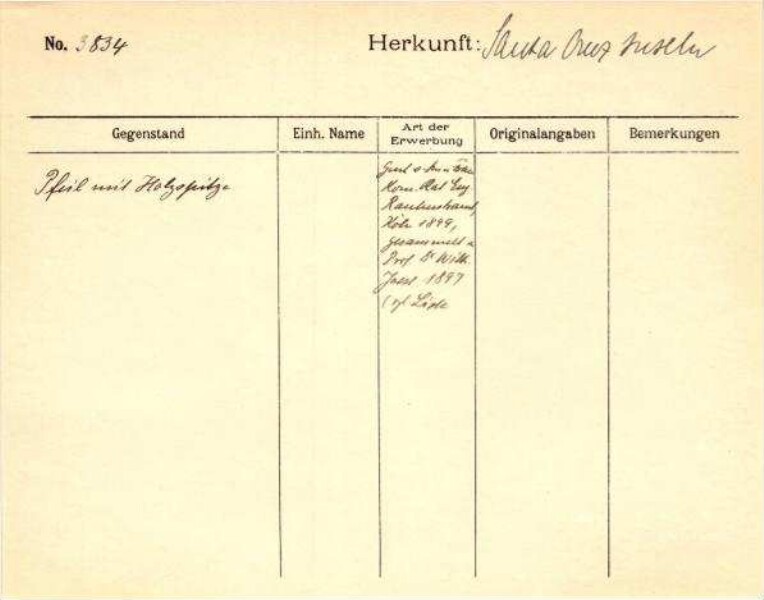 No. 3834
Herkunft: Santa Cruz Inseln
Gegenstand
Einh. Name
Art der Erwerbung
Originalangaben
Bemerkungen
Pfeil mit Holzspitze
Kom. Rat Eug
Rautenstrauch,
Köln 1899,
gesammelt v
Prof Dr Wilh.
Joest 1897
Liste